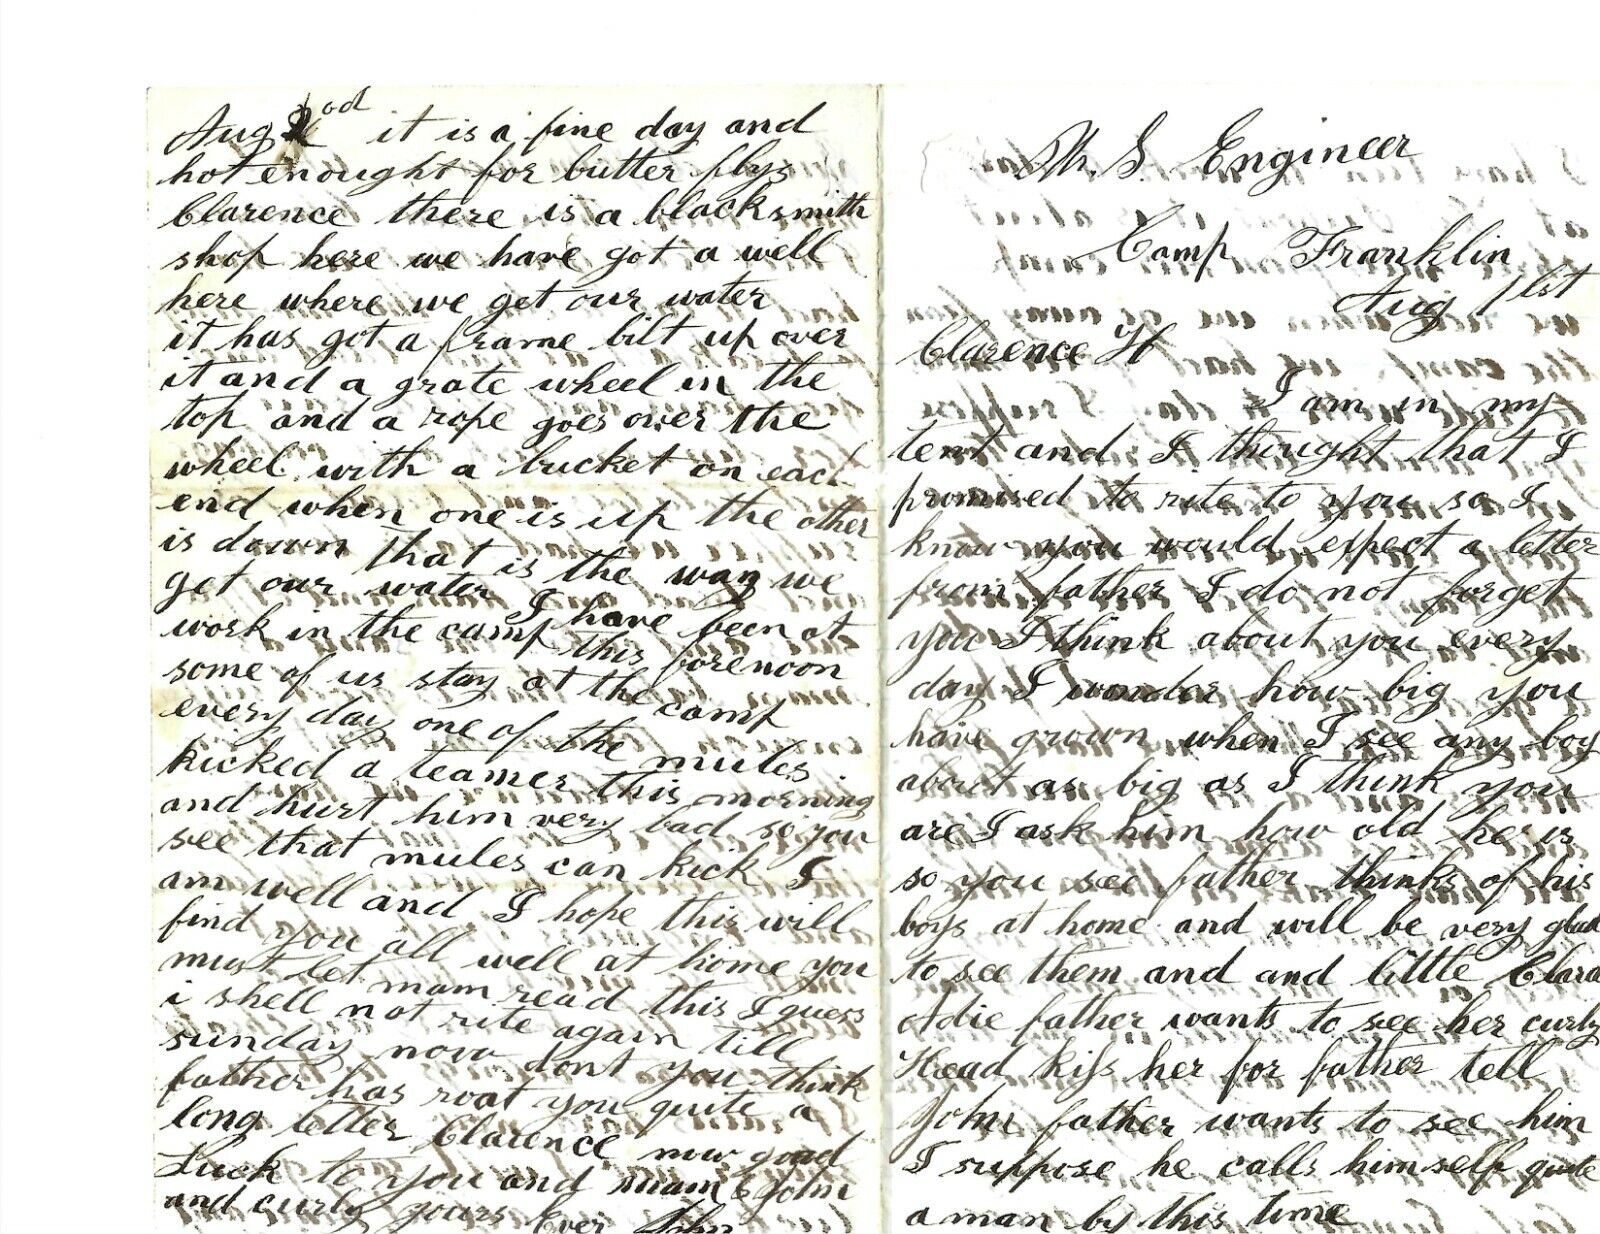 U. S. Engineer
Camp Franklin
Aug 1st
Clarence H
I am in my
tent and I thought that I
promised to rite to you so I
know you would expect a letter
from father I do not forget
you I think about you every
day I wonder how big you
have grown when I see any boy
about as big as I think you
are I ask him how old he is
so you see father thinks of his
boys at home and will be very glad
to see them and and little Clara
Adie father wants to see her curly
Head kiss her for father tell
John father wants to see him
I suppose he calls himself quite
a man by this time
Aug 2od it is a fine day and
hot enought for butter flys
Clarence there is a blacksmith
shop here we have got a well
here where we get our water
it has got a frame bilt up over
it and a grate wheel in the
top and a rope goes over the
wheel with a bucket on each
end when one is up the other
is down that is the way we
get our water I have been at
work in the camp this forenoon
some of us stay at the camp
every day one of the mules
kicked a teamer this morning
and hurt him very bad so you
see that mules can kick I
am well and I hope this will
find you all well at home you
must let mam read this I guess
i shell not rite again till
sunday now dont you think
father has roat you quite a
long letter Clarence now good
Luck to you and mam & John
and curly yours Ever John